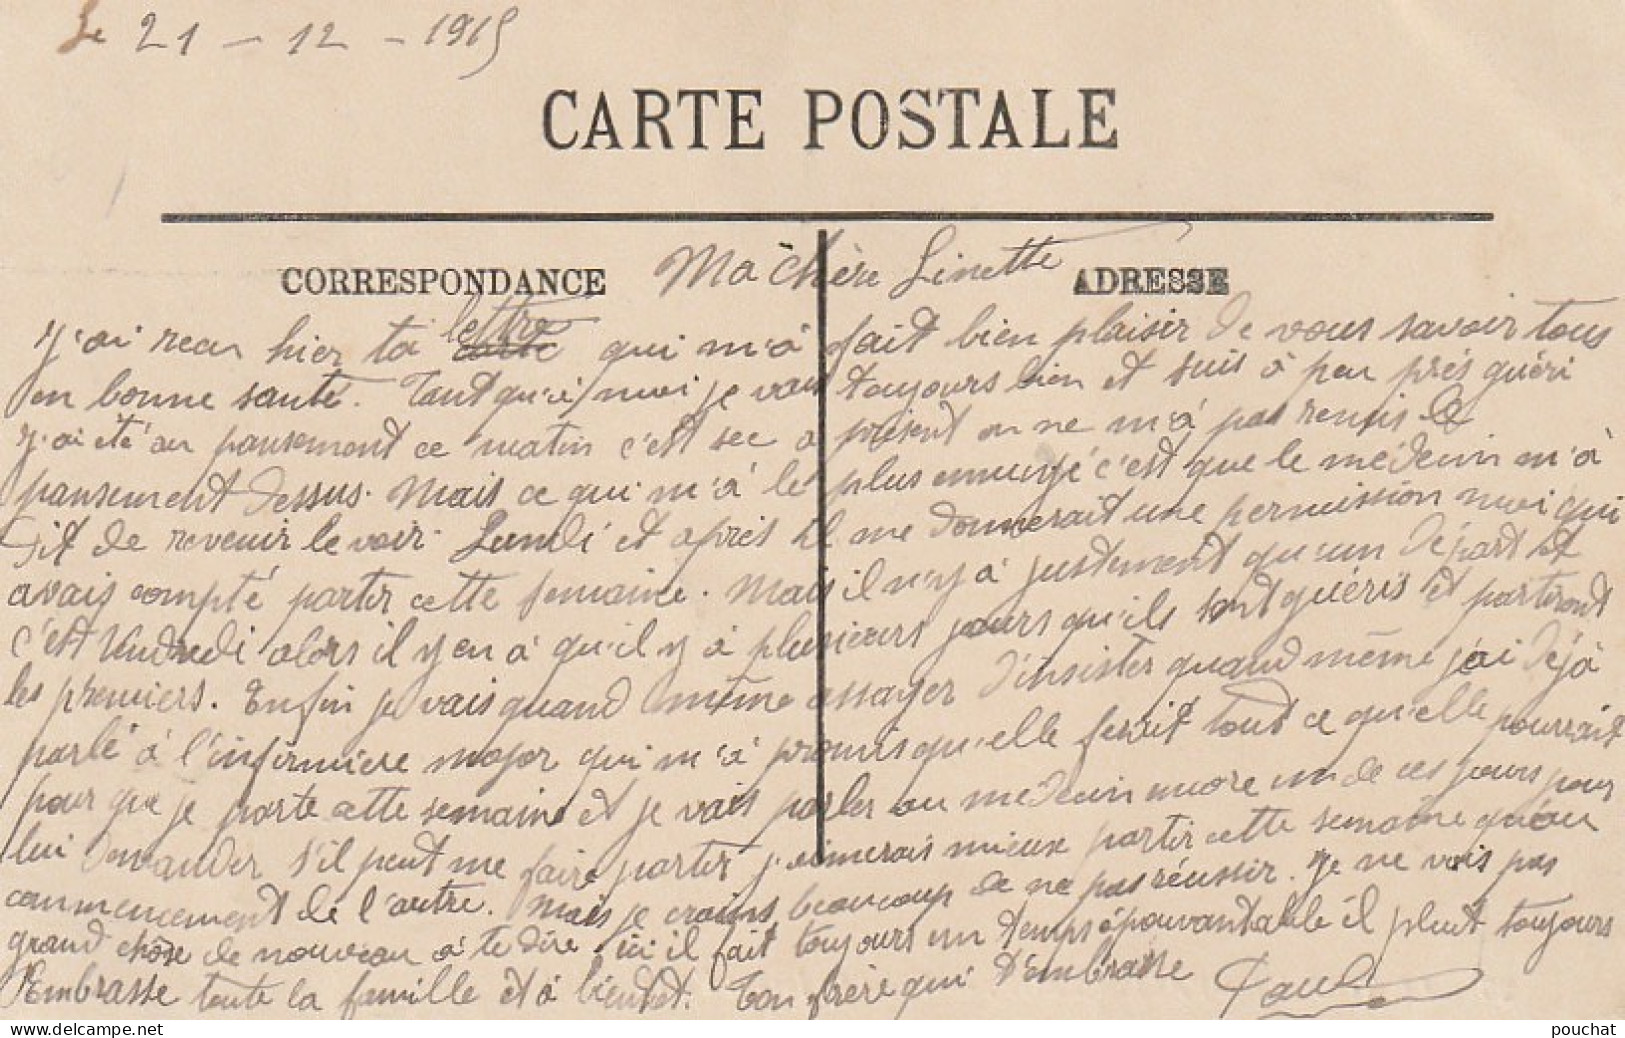 Le 21 - 12 - 1915
CARTE POSTALE
CORRESPONDANCE
ADRESSE
Ma chère Linette
J'ai recu hier ta lettre qui m'a fait bien plaisir de vous savoir tous
en bonne santé. Tant qu'à moi je vais toujours bien et suis à peu prés guéri
j'ai été au pansement ce matin c'est sec a présent on ne m'à pas remis de
pansement dessus. Mais ce qui m'à le plus ennuyé c'est que le médecin m'à
dit de revenir le voir Lundi et après il me donnerait une permission moi qui
avais compté partir cette semaine. Mais il n'y à justement qu'un départ et
c'est Vendredi alors il y en à qu'il y à plusieurs jours qu'ils sont guéris et partiront
les premiers. Enfin je vais quand même essayer d'insister quand même j'ai déjà
parlé à l'infirmière major qui m'à promis qu'elle ferait tout ce qu'elle pourrait
pour que je parte cette semaine et je vais parler au médecin encore un de ces jours pour
lui demander s'il peut me faire partir j'aimerais mieux partir cette semaine qu'au
commencement de l'autre. Mais je crains beaucoup de ne pas réussir. Je ne vois pas
grand chose de nouveau à te dire. ici il fait toujours un temps épouvantable il pleut toujours
Embrasse toute la famille et à bientot. Ton frère qui t'embrasse Paul
delcampe.net
pouchat